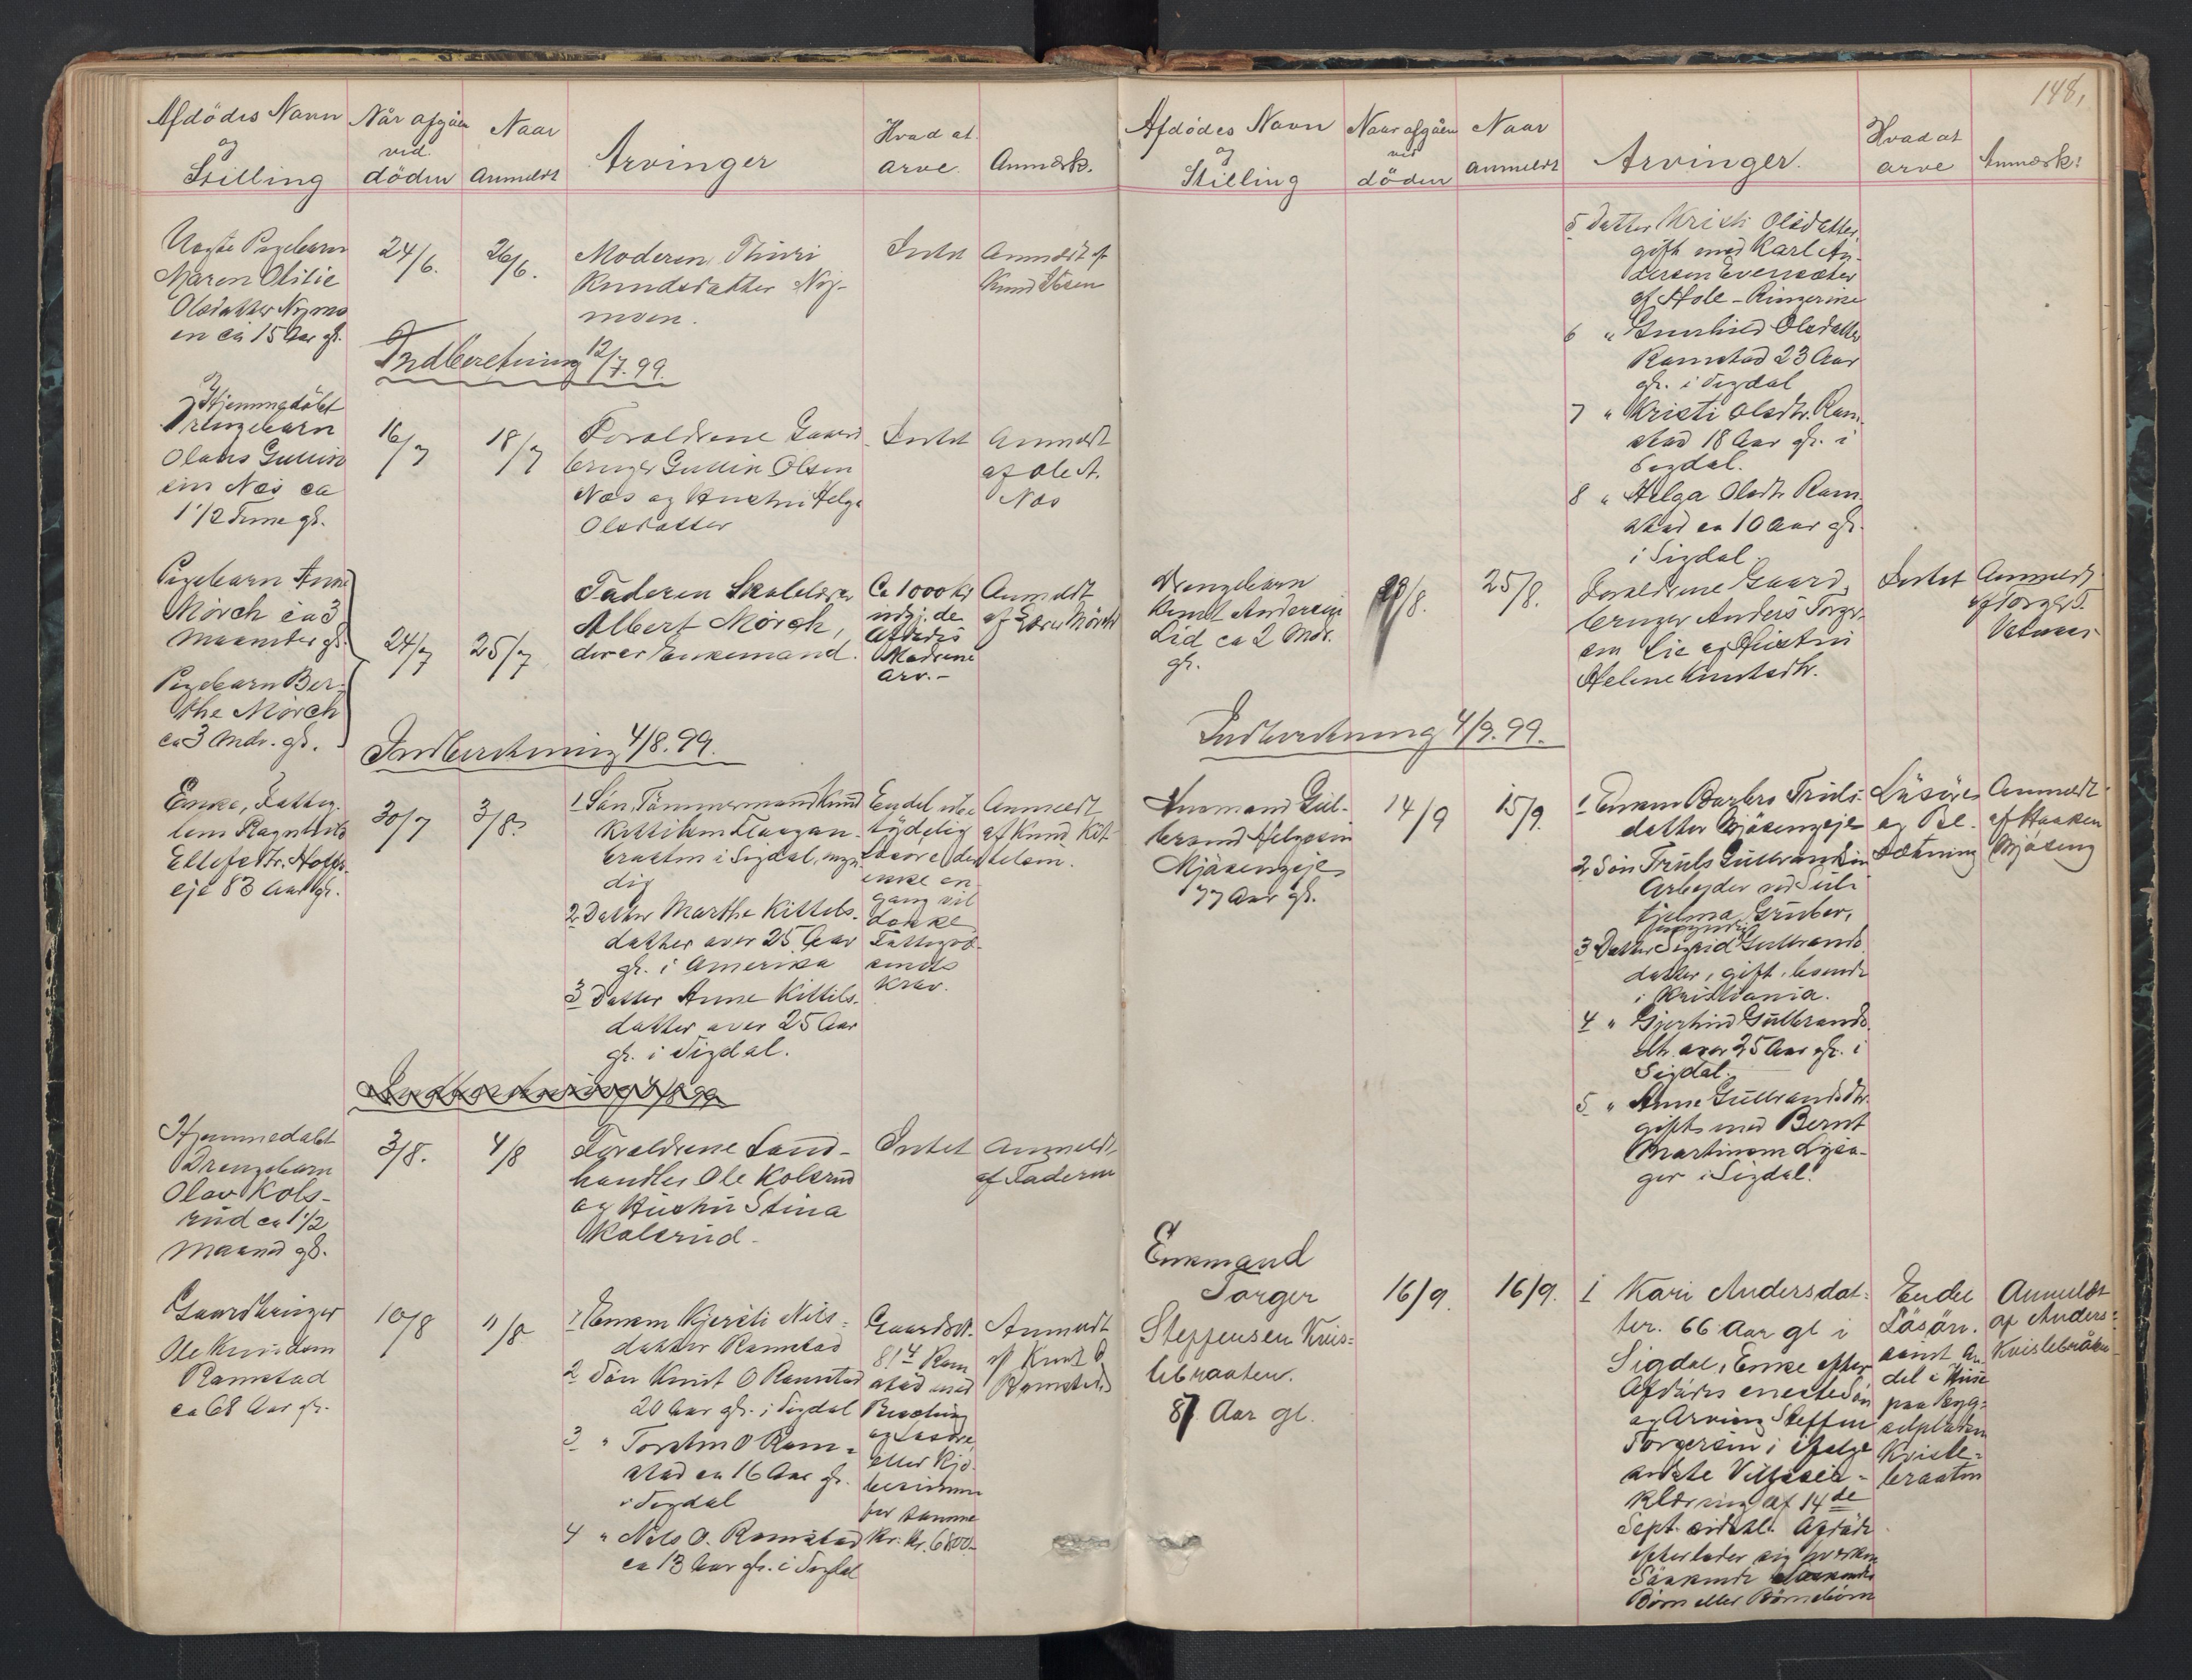 Afdödes Navn
og
Stilling
Når afgåen
ved
döden
Naar
Anmeldt
Arvinger
Hvad at
arve.
Anmærk.
Uægte Pigebarn
Maren Otilie
Olsdatter Nymo
en ca 15 Aar gl.
24/6.
26/6.
Moderen Thuri
Knudsdatter Ny-
moen.
Intet
Anmeldt af
Knud Olsen
Indberetning 12/7.99.
Hjemmedöbt
Drengebarn
Olaus Gulliksen
Næs ca
1 1/2 Time gl.
16/7
18/7
Forældrene Gaard
bruger Gullik Olsen
Næs og Hustru Helga
Olsdatter
Intet
Anmeldt
af Ole A.
Næs
Pigebarn Anne
Mörch ca 3
Maaneder gl.
Pigebarn Ber-
the Mörch
ca 3 Mdr. gl.
24/7
25/7
Faderen Skolelærer
Albert Mörch,
der er Enkemand.
Ca 1000 Kr
indg. i de
Afdödes
Mödrene
Arv.-
Anmeldt
af Mörch
Indberetning 4/8.99.
Enke, Fattig-
lem Ragnhild
Ellefsdtr. Holtes-
eje 83 Aar gl.
30/7
3/8.
1 Sön, Tömmermand Knud
Kittilsen Flaagan-
braaten i Sigdal, myn
dig
2 Datter Marthe Kittils-
datter over 25 Aar
gl. i Amerika
3 Datter Anne Kittils-
datter over 25 Aar
gl. i Sigdal.
En del ube
tydelig
Lösöre der
ikke en
gang vil
dække
Fattigvæ-
senets
Krav.
Anmeldt
af Knud Kit-
telsen.
Indberetning 4/8.99
Hjemmedöbt
Drengebarn
Olav Kols-
rud ca 1 1/2
Maaned gl.
3/8.
4/8
Forældrene Land-
handler Ole Kolsrud
og Hustru Stina
Kolsrud-
Intet
Anmeldt
af Faderen
Gaardbruger
Ole Knudsen
Ramstad
ca 68 Aar gl.
10/8
11/8
1 Enken Kjersti Nils-
datter Ramstad
2 Sön Knut O Ramstad
20 Aar gl. i Sigdal
3 " Torsten O Ram-
stad ca 16 Aar gl.
i Sigdal
4 " Nils O. Ramstad
ca 13 Aar gl. i Sigdal
Gaardst.
81⁴ Ram
stad med
Besætning
og Lösöre
eller Kjö-
besummen
for samme
Kr. Kr. 6800-
Anmeldt
af Knut O
Ramstad
148,
Afdödes Navn
og
Stilling
Naar afgåen
ved
döden
Naar
anmeldt
Arvinger.
Hvad at
arve
Anmærk.
5 Datter Kristi Olsdatter,
gift med Karl An-
dersen Evensæter
af Hole - Ringerike
6 " Gunhild Olsdatter
Ramstad 23 Aar
gl. i Sigdal
7 " Kristi Olsdtr. Ram-
stad 18 Aar gl. i
Sigdal.
8 " Helga Olsdtr. Ram-
stad ca 10 Aar gl.
i Sigdal.
Drengebarn
Knut Andersen
Lid ca 2 Mdr.
gl.
/8.
25/8.
Forældrene Gaard-
bruger Anders Torger-
sen Lie og Hustru
Helene Knutsdtr.
Intet
Anmeldt
af Torger T.
Indberetning 4/9.99.
Husmand Gul-
brand Helgesen
Mjösengeje
77 Aar gl.
14/9
15/9.
1 Enken Barbro Truls-
datter Mjösengeje
2 Sön Truls Gulbrandsen
Arbejder ved Suli-
tjelma Gruber,
myndig
3 Datter Sigrid Gulbrands
datter, gift, boende
i Kristiania.
4 " Gjertrud Gulbrands
dtr. over 25 Aar gl. i
Sigdal.
5 " Anne Gulbrandsdtr.
gift med Bernt
Martinsen Lyså-
ger i Sigdal.
Lösöre
og Be-
sætning
Anmeldt
af Haaken
Mjöseng
Enkmand
Torger
Steffensen Kvis-
lebraaten.
87 Aar gl.
16/9.
16/9.
1 Kari Andersdat-
ter. 66 Aar gl i
Sigdal, Enke efter
Afdödes eneste Sön
og Arving Steffen
Torgersen i ifölge
Klæring af 14de
Sept. sidstl. Afdöde
efterlader sig hverken
Söskende Söskende
Börn eller Börnebörn
Endel
Lösöre.
samt An-
del i Huse
paa Byg-
selpladsen
Kvisle-
braaten
Anmeldt
af Anders
Kvislebråten